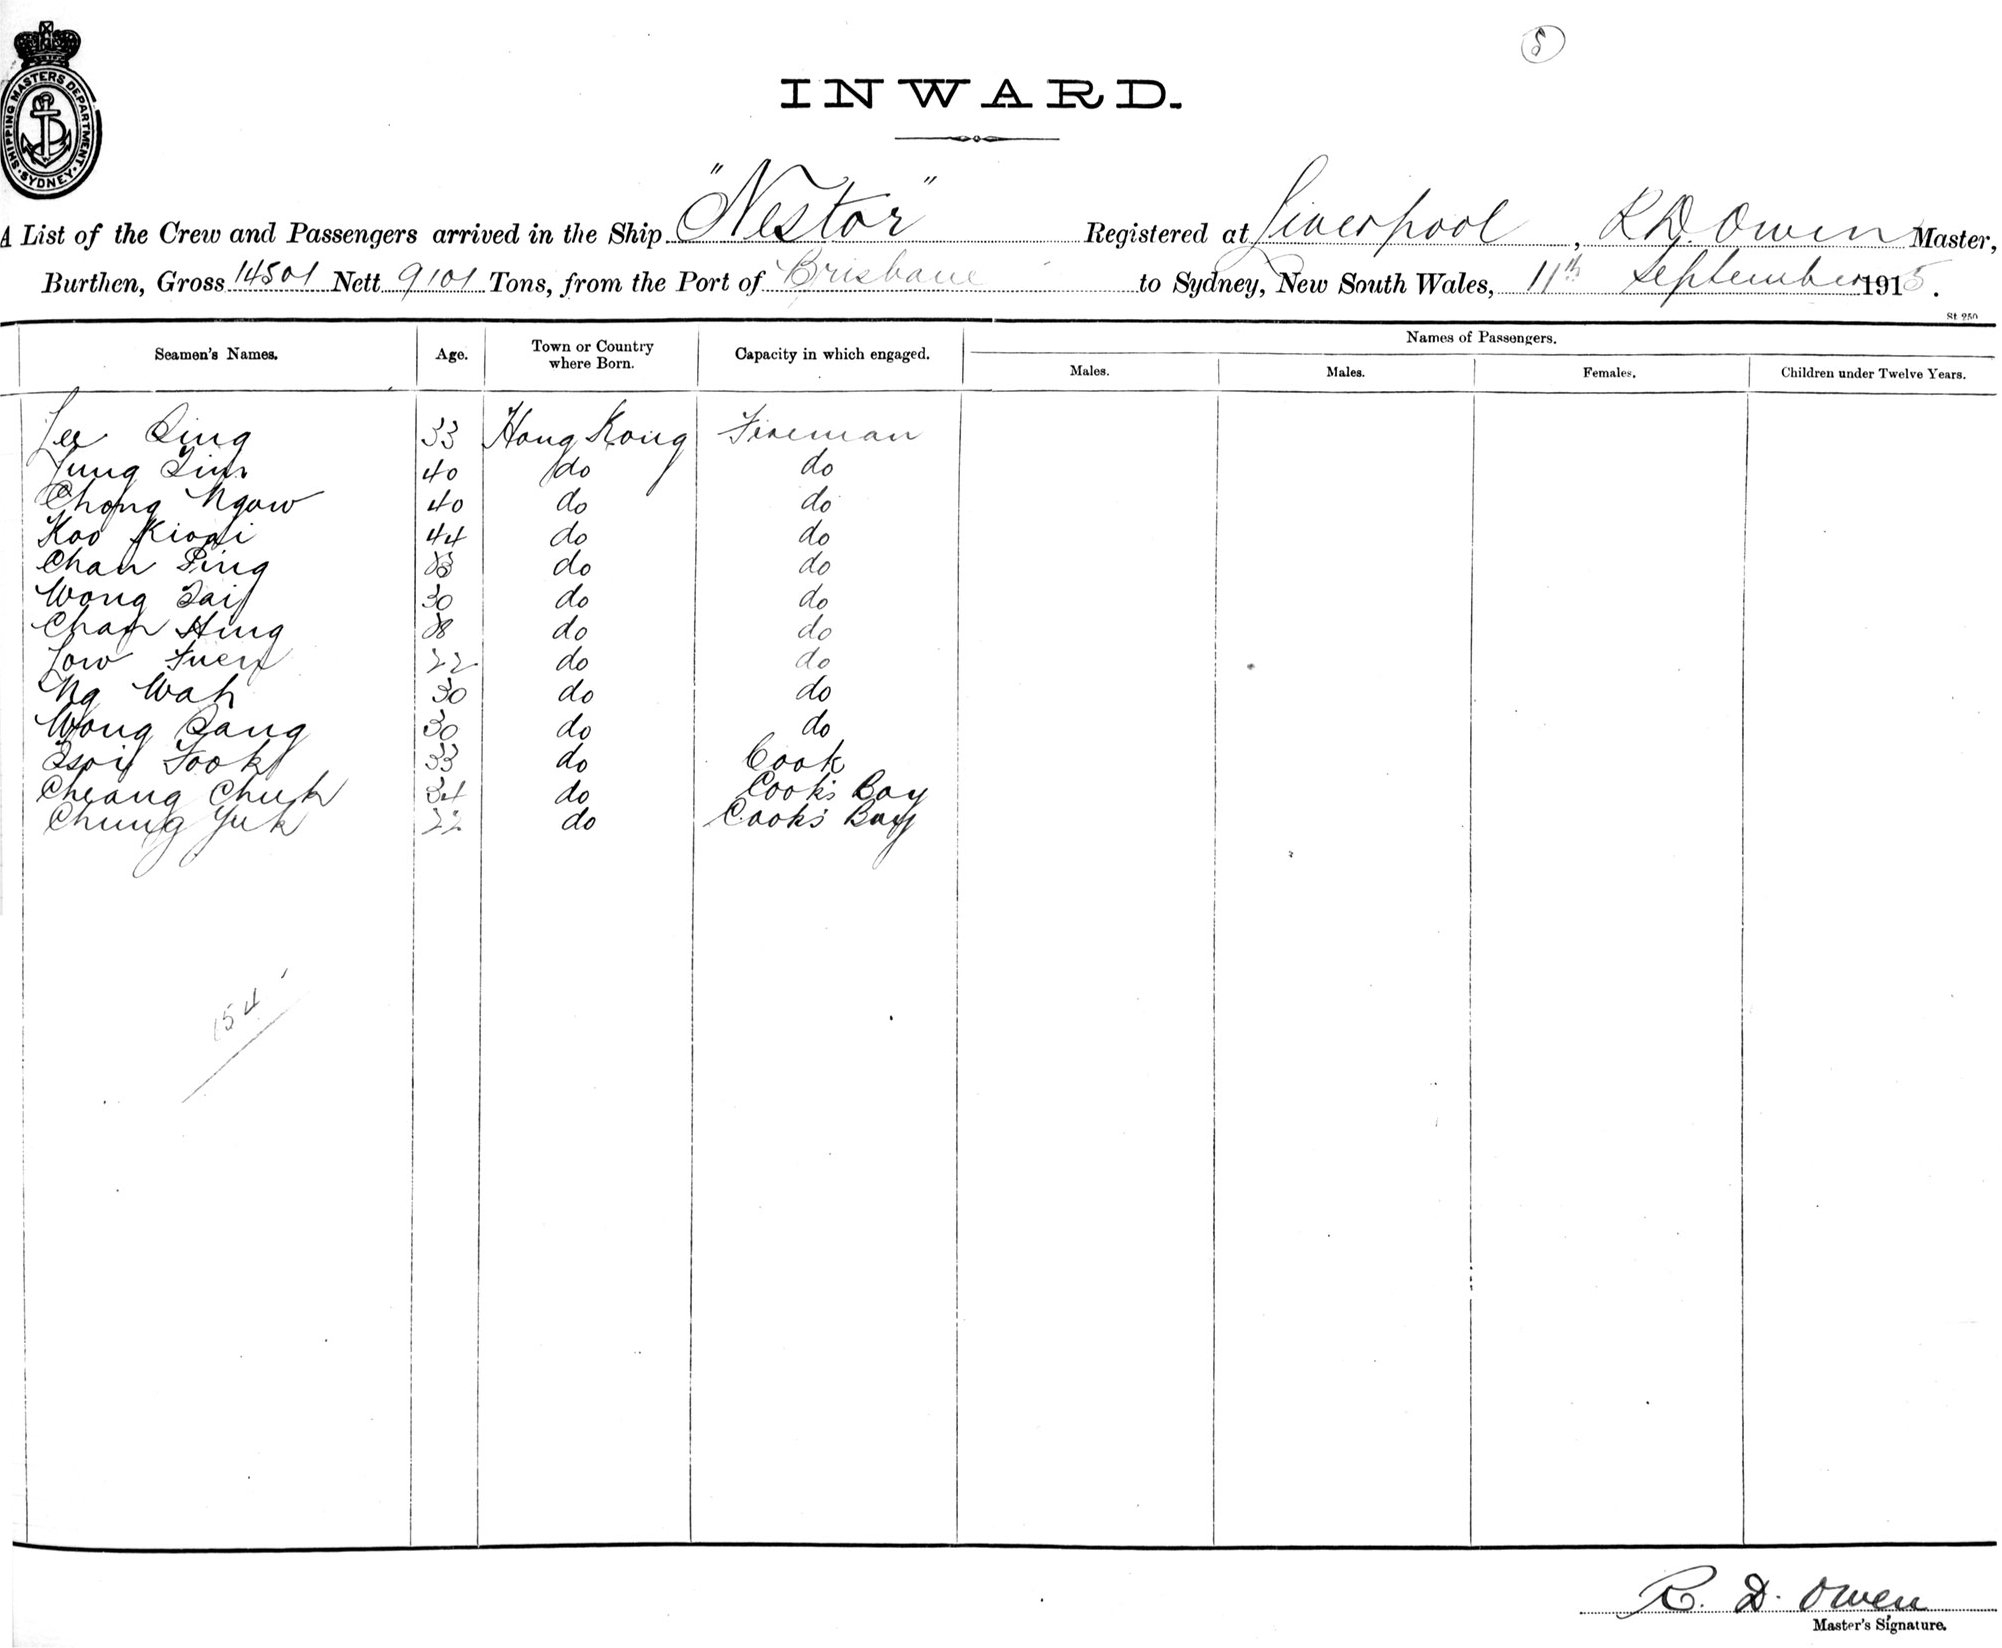 5
SHIPPING MASTERS DEPARTMENT. SYDNEY.
INWARD.
A List of the Crew and Passengers arrived in the Ship "Nestor" Registered at Liverpool, R.D. Owen Master,
Burthen, Gross 14501 Nett 9101 Tons, from the Port of Brisbane to Sydney, New South Wales, 11th September 1915.
St 250
Seamen's Names. Age. Town or Country where Born. Capacity in which engaged. Names of Passengers.
Males. Males. Females. Children under Twelve Years.
Lee Sing 33 Hong Kong Fireman
Yung Sim 40 do do
Chong Ngow 40 do do
Koo 44 do do
Chan Ping do do
Wong Tai 30 do do
Chan Hing do do
Low Fuen 22 do do
Ng Wah 30 do do
Wong Sang 30 do do
Tsoi Fook 33 do Cook
Cheang Chuk 34 do Cook's Boy
Chung Yuk 22 do Cook's Boy
154
R. D. Owen
Master's Signature.